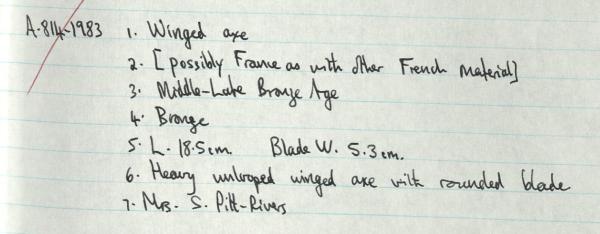 A.814-1983 1. Winged axe
2. [possibly France as with other French material]
3. Middle-Late Bronze Age
4. Bronze
5. L. 18.5cm. Blade W. 5.3cm.
6. Heavy unlooped winged axe with rounded blade
7. Mrs. S. Pitt-Rivers